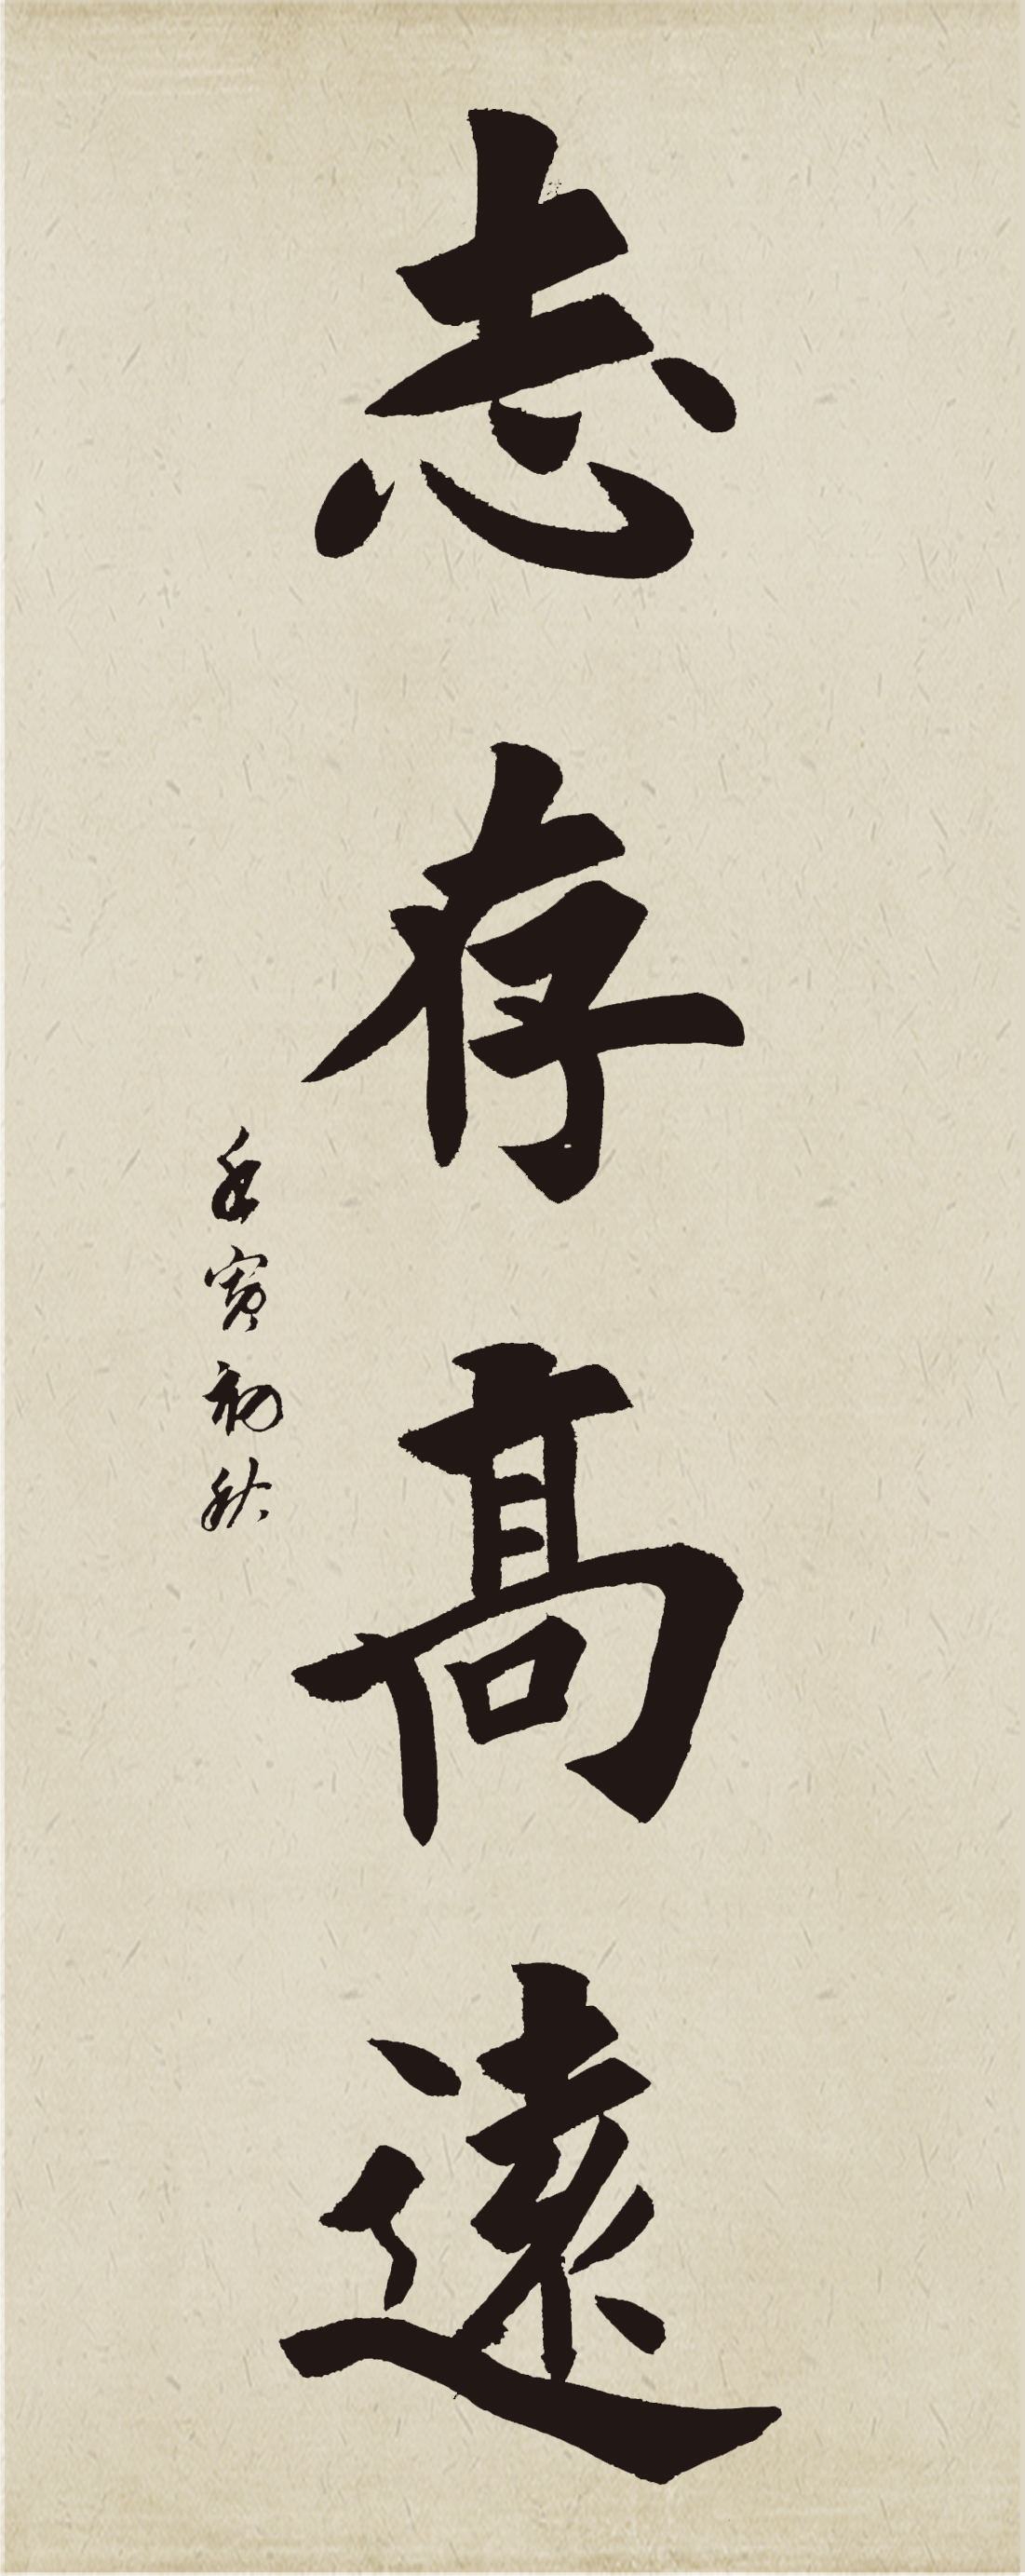 志存髙遠
壬寅初秋